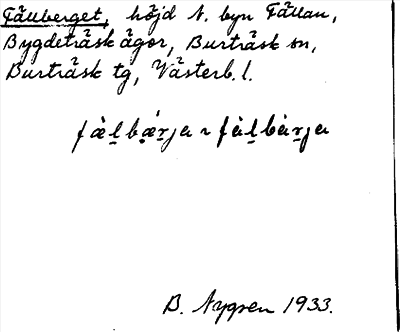 Fällberget, höjd N. byn Fällan,
Bygdeträsk ägor, Burträsk sn,
Burträsk tg, Västerb. l.
fàl̠bæ̀r̠ja ~ fàl̠bàr̠ja
B. Nygren 1933.